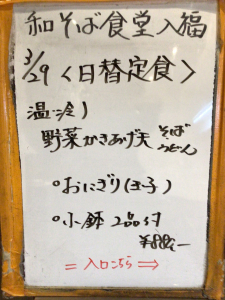 和そば食堂入福
3/29 <日替定食>
温・冷)
野菜かきあげ天 そば
うどん
○おにぎり(玉子)
○小鉢 2品付
¥880-
=入口こちら⇒